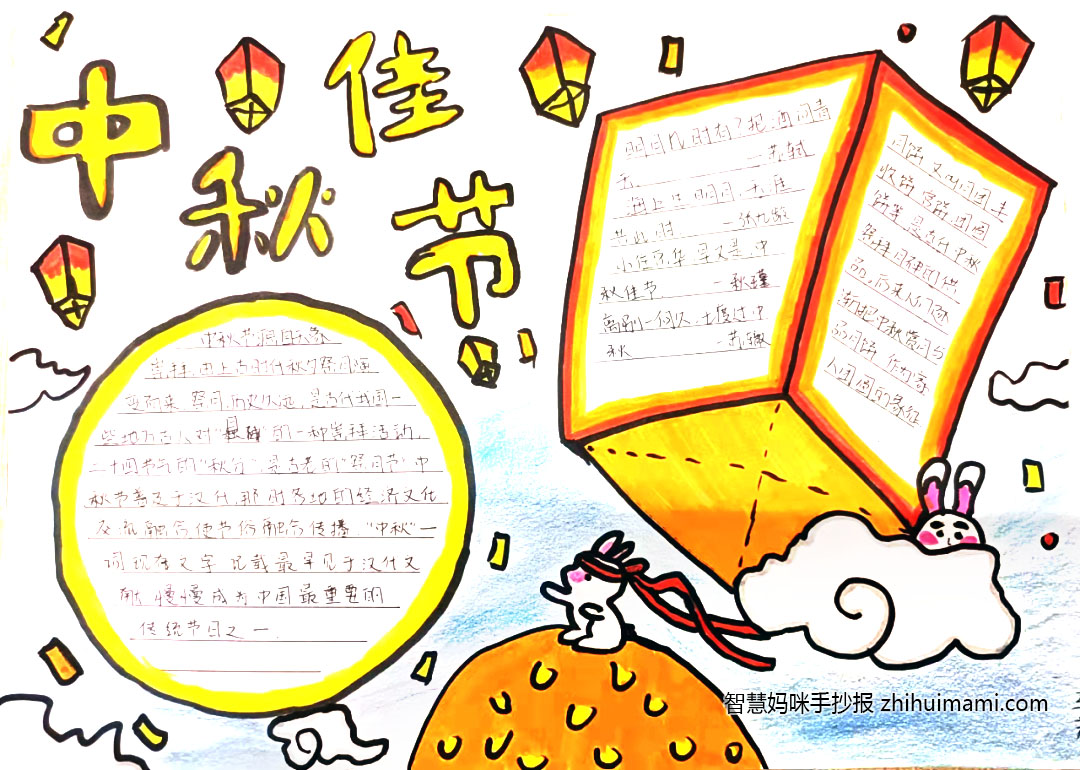 中秋佳节
中秋节源自天象
崇拜,由上古时代秋夕祭月演
变而来。祭月,历史久远,是古代我国一
些地方古人对“月神”的一种崇拜活动,
二十四节气的“秋分”,是古老的“祭月节”中
秋节普及于汉代,那时各地的经济文化
交流融合使节俗融合传播“中秋”一
词现存文字记载最早见于汉代文
献,慢慢成为中国最重要的
传统节日之一.
明月几时有?把酒问青
天。 —苏轼
海上生明月,天涯
共此时 —张九龄
小住京华,早又是,中
秋佳节. —秋瑾
离别一何久,七度过中
秋 —苏辙
月饼又叫月团、丰
收饼、宫饼、团圆
饼等是古代中秋
祭拜月神的供
品。后来人们逐
渐把中秋赏月与
品月饼,作为家
人团圆的象征
智慧妈咪手抄报 zhihuimami.com